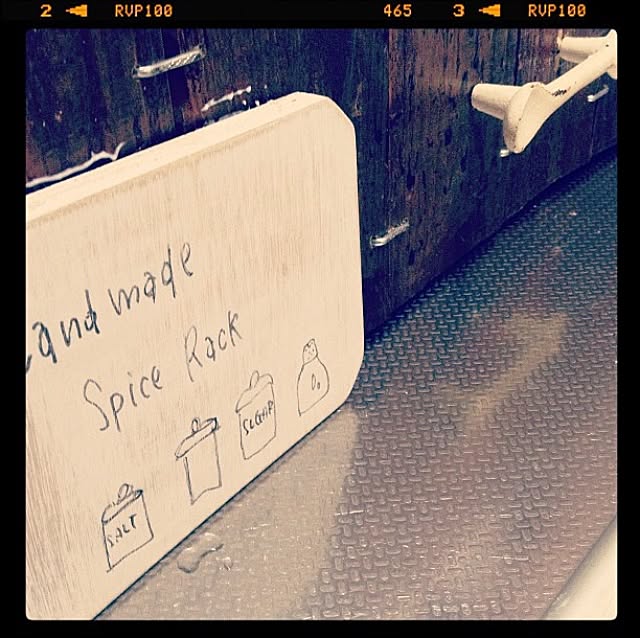 2 RVP100 465 3 RVP100
andmade
Spice Rack
SALT